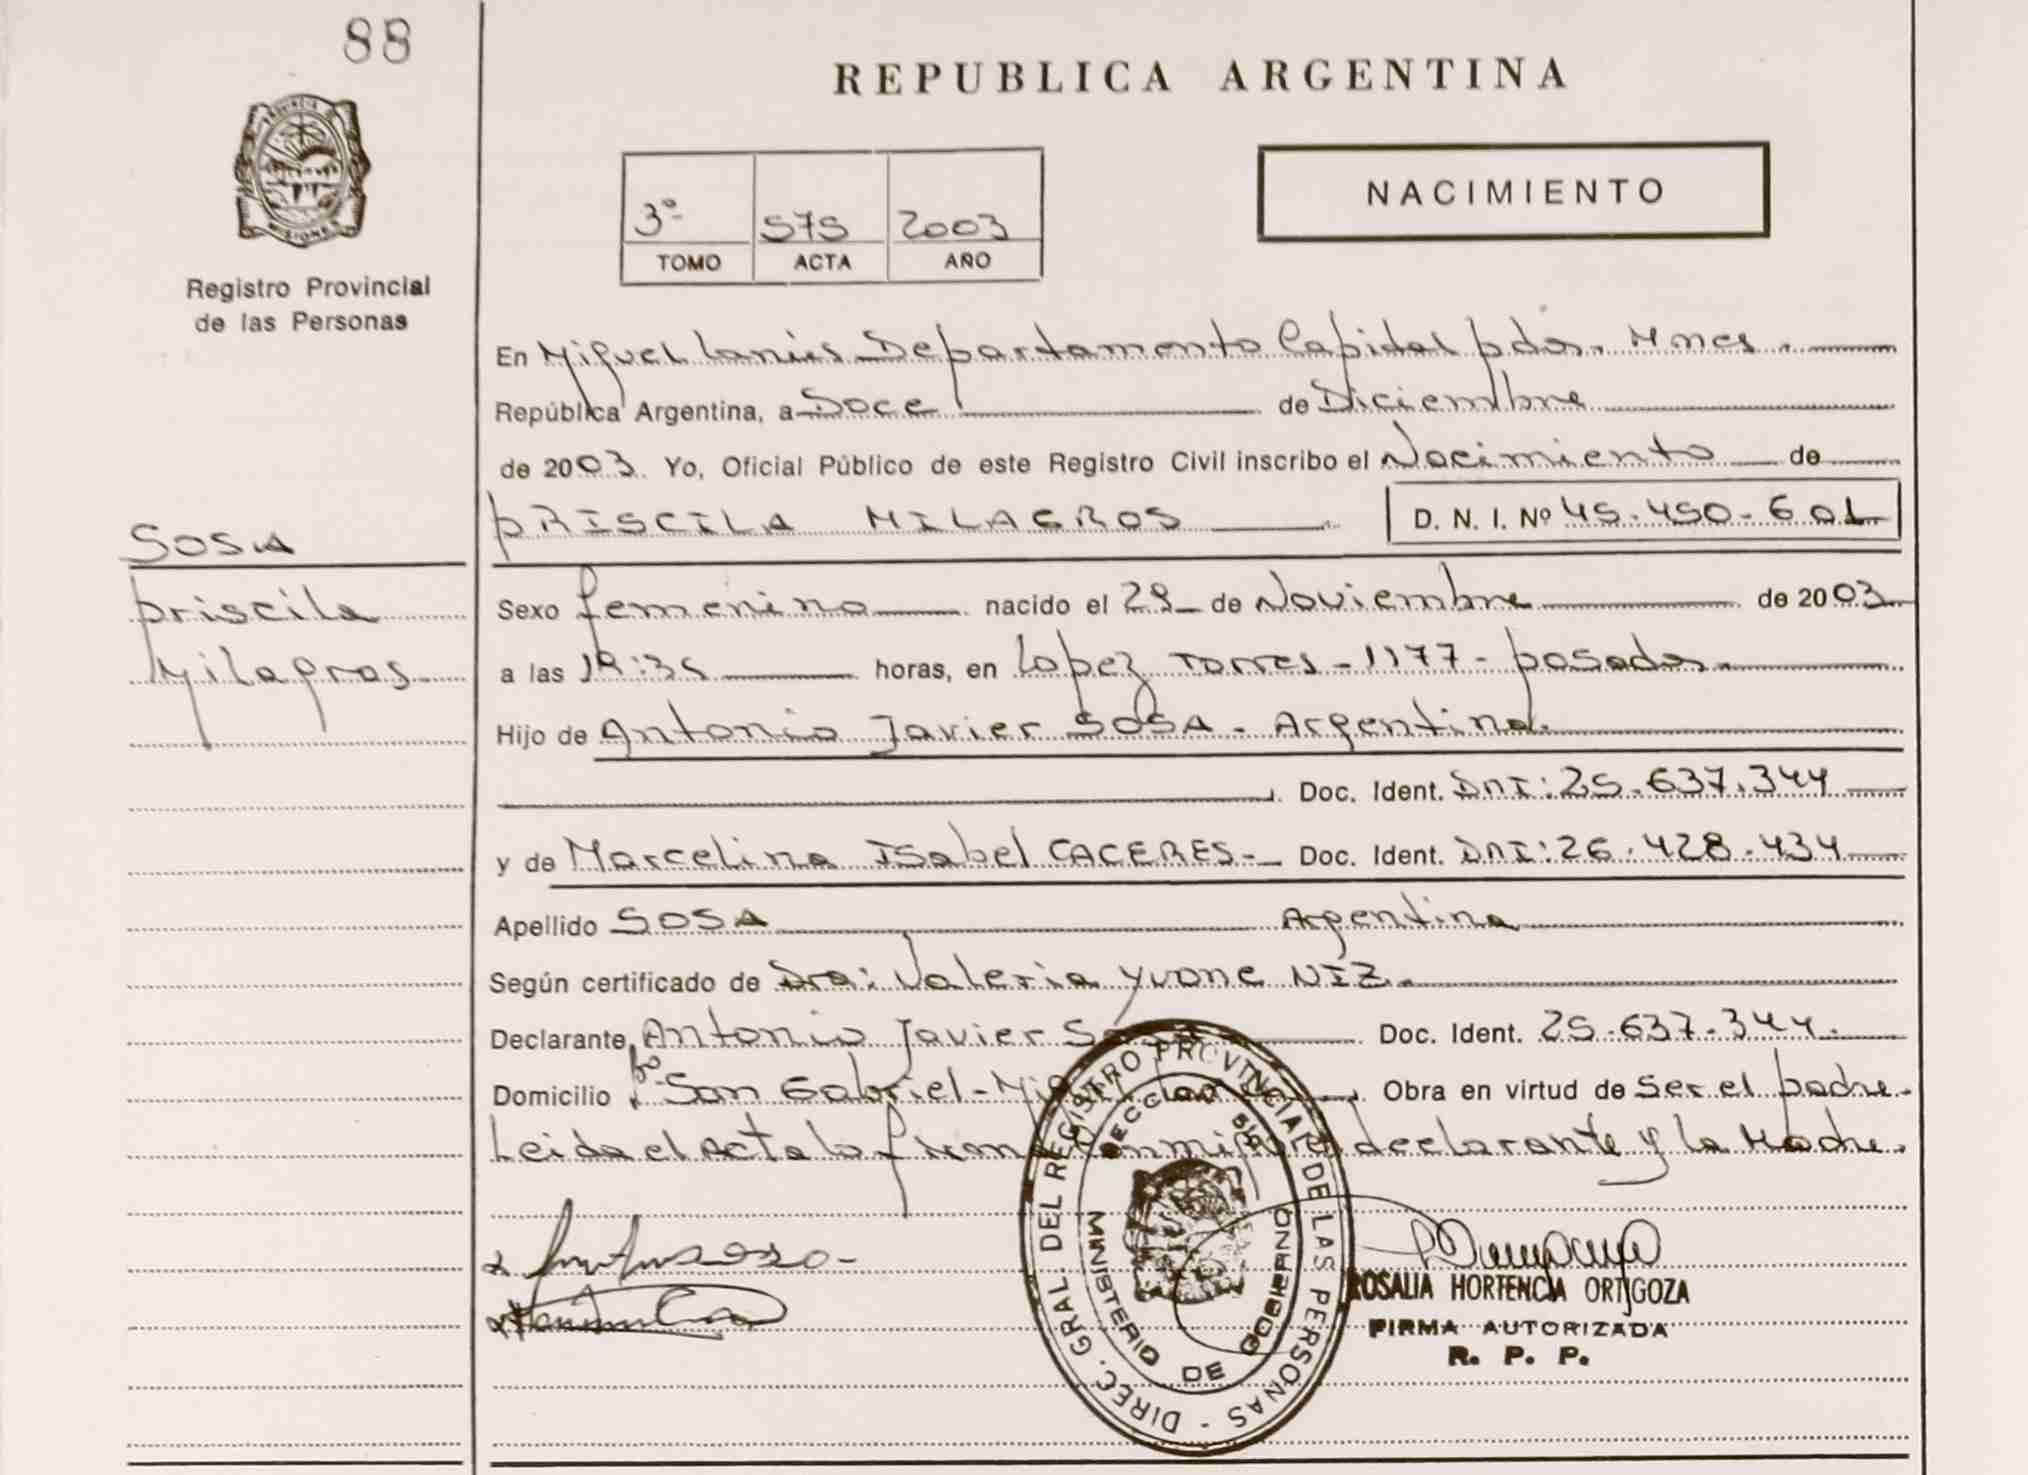 88
REPUBLICA ARGENTINA
PROVINCIA
MISIONES
Registro Provincial
de las Personas
3º 575 2003
TOMO ACTA AÑO
NACIMIENTO
En Miguel Lanús Departamento Capital pdas. Mnes.
República Argentina, a Doce de Diciembre
de 2003. Yo, Oficial Público de este Registro Civil inscribo el Nacimiento de
PRISCILA MILAGROS D. N. I. Nº 45.450.601
SOSA
Priscila
Milagros
Sexo femenino nacido el 28 de Noviembre de 2003
a las 19:35 horas, en Lopez Torres - 1177 - posadas.
Hijo de Antonio Javier SOSA - Argentina.
Doc. Ident. DNI: 25.637.344
y de Marcelina Isabel CACERES - Doc. Ident. DNI: 26.428.434
Apellido SOSA Argentina
Según certificado de Dra: Valeria Yvone NIZ.
Declarante Antonio Javier Sosa Doc. Ident. 25.637.344.
Domicilio Bº San Gabriel - Obra en virtud de Ser el padre.
Leida el Acta la firman conmigo el declarante y la Madre.
DIREC. GRAL. DEL REGISTRO PROVINCIAL DE LAS PERSONAS -
MINISTERIO DE GOBIERNO
ROSALIA HORTENCIA ORTIGOZA
FIRMA AUTORIZADA
R. P. P.